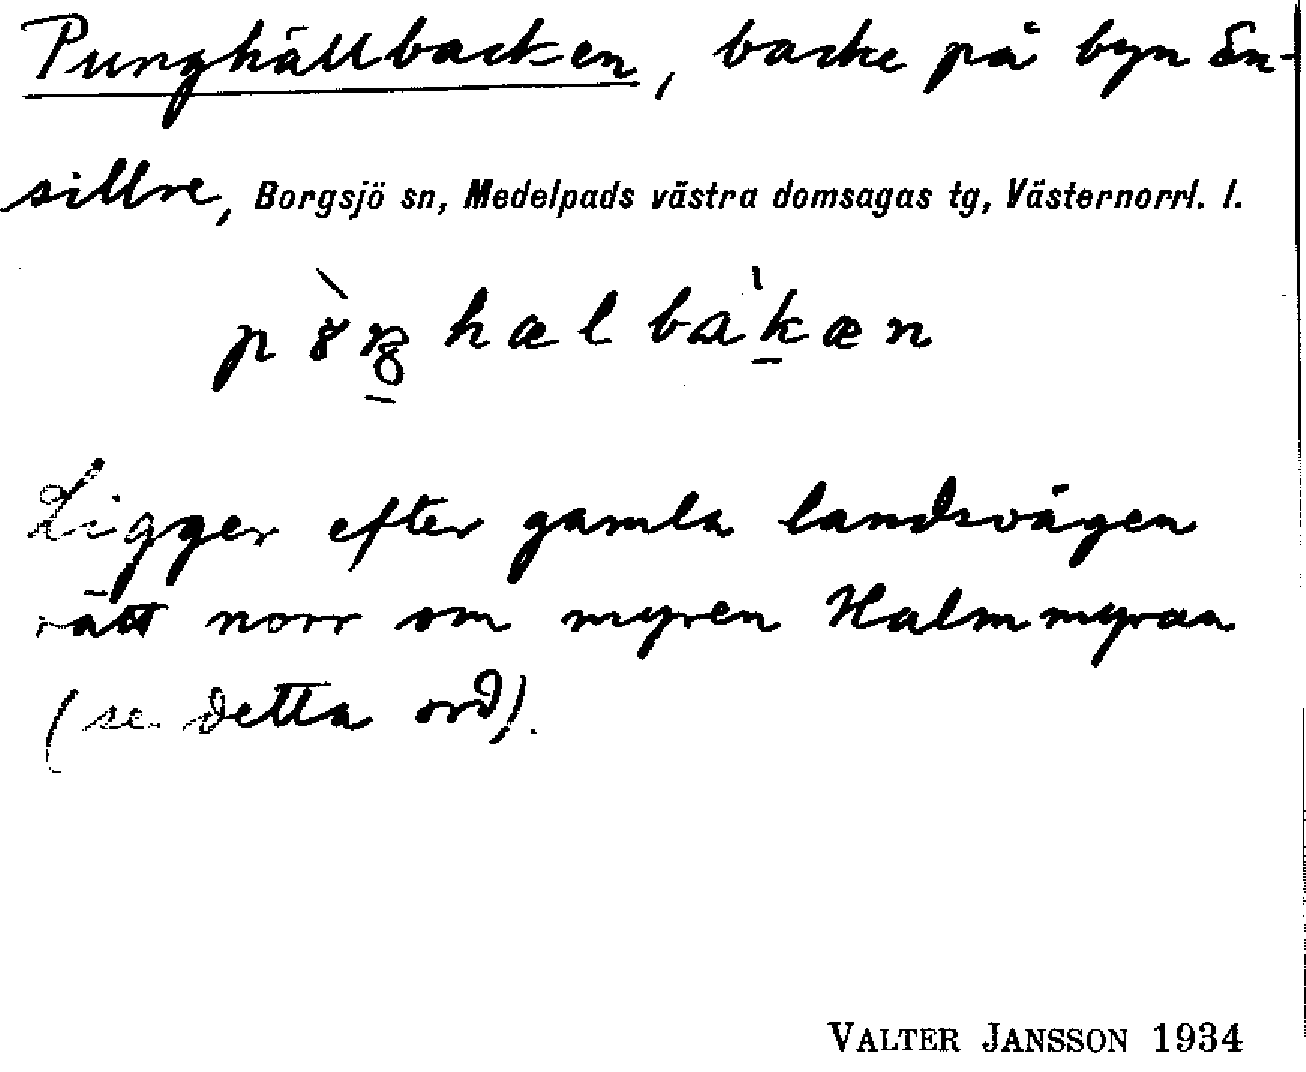 Punghällbacken, backe på byn En-
sillre, Borgsjö sn, Medelpads västra domsagas tg, Västernorrl. l.
Ligger efter gamla landsvägen
rätt norr om myren Halmmyran
(se detta ord).
VALTER JANSSON 1934